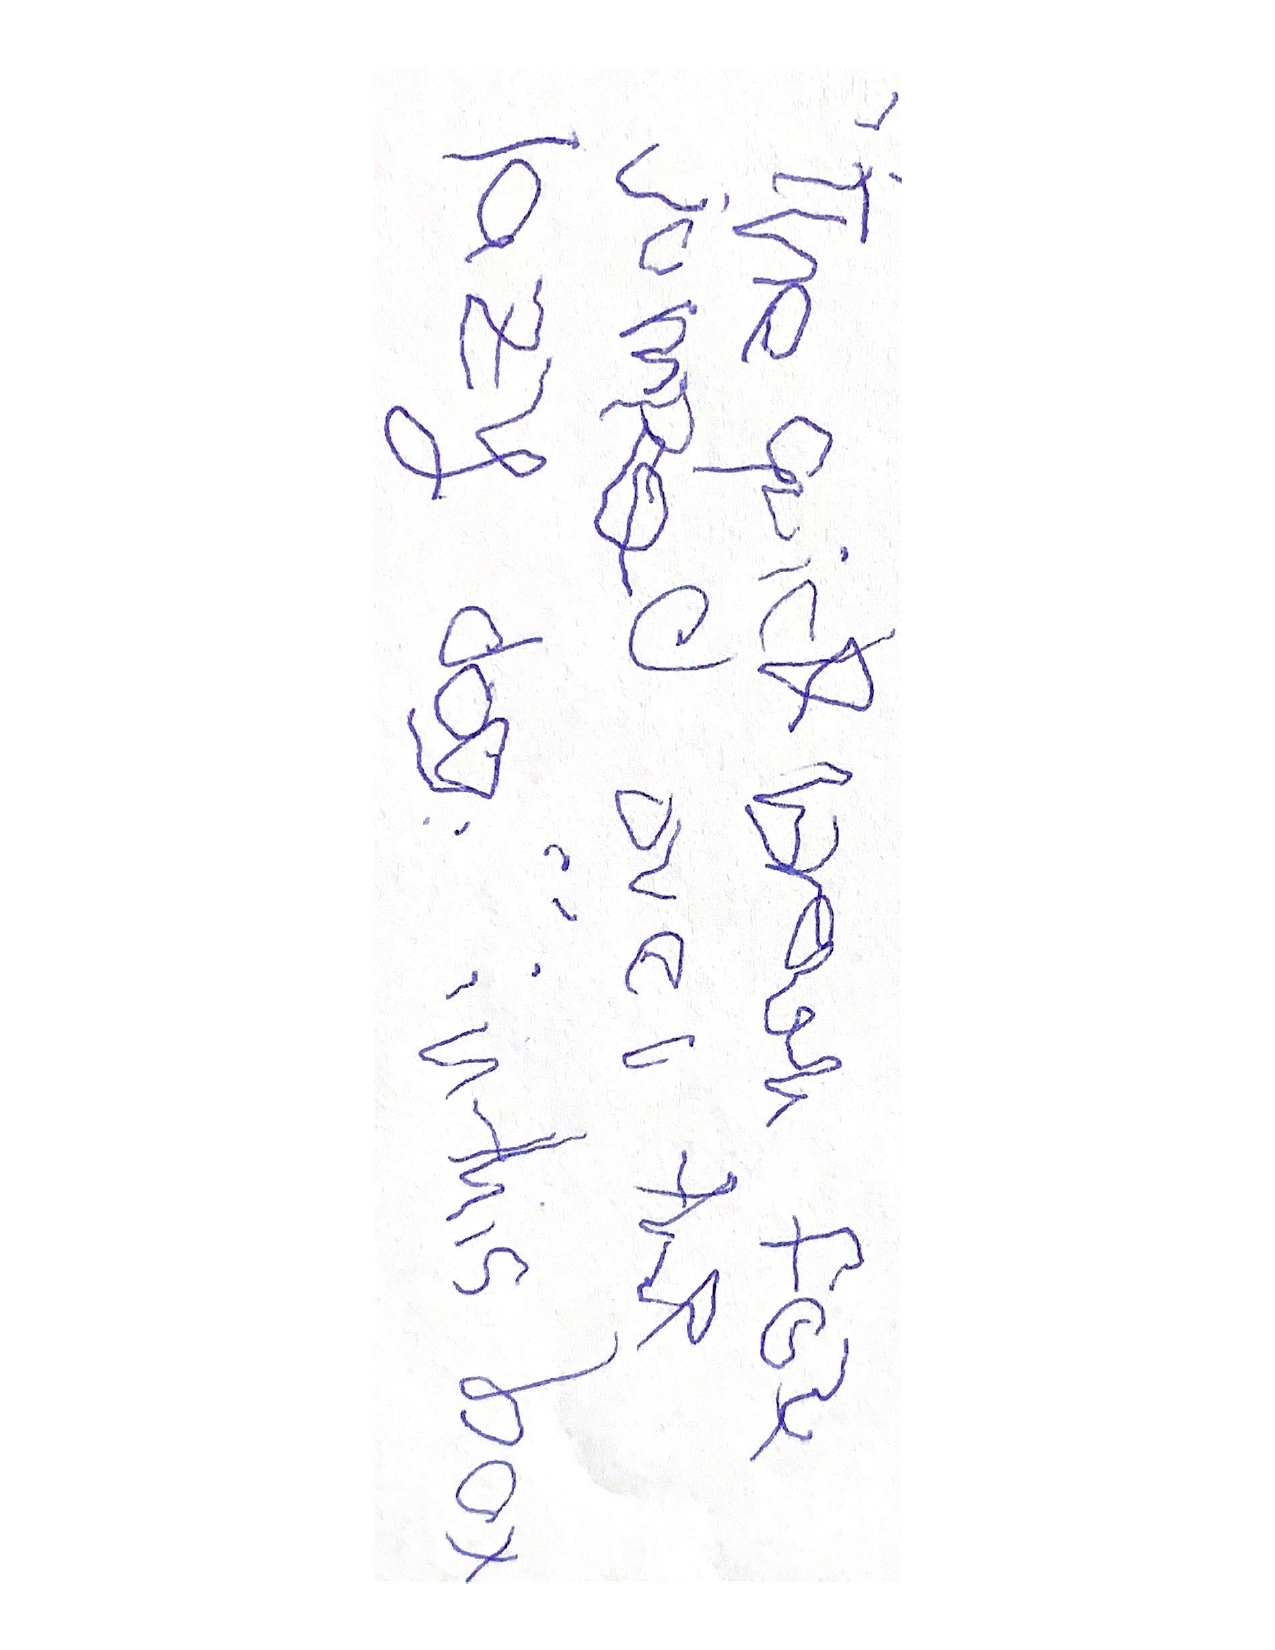 "The quick brown fox
jumped over the
lazy dog." in this box